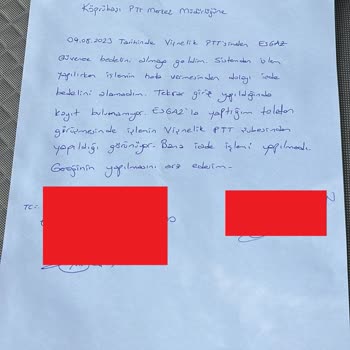 Köprübaşı PTT Merkez Müdürlüğüne
04.08.2023 Tarihinde Vişnelik PTT'sinden ESGAZ
Güvence bedelini almaya geldim. Sistemden işlem
yapılırken işlemin hata vermesinden dolayı iade
bedelini alamadım. Tekrar giriş yapıldığında
kayıt bulunamıyor. ESGAZ'la yaptığım telefon
görüşmesinde işlemin Vişnelik PTT şubesinden
yapıldığı görünüyor. Bana iade işlemi yapılmadı.
Gereğinin yapılmasını arz ederim.
TC: